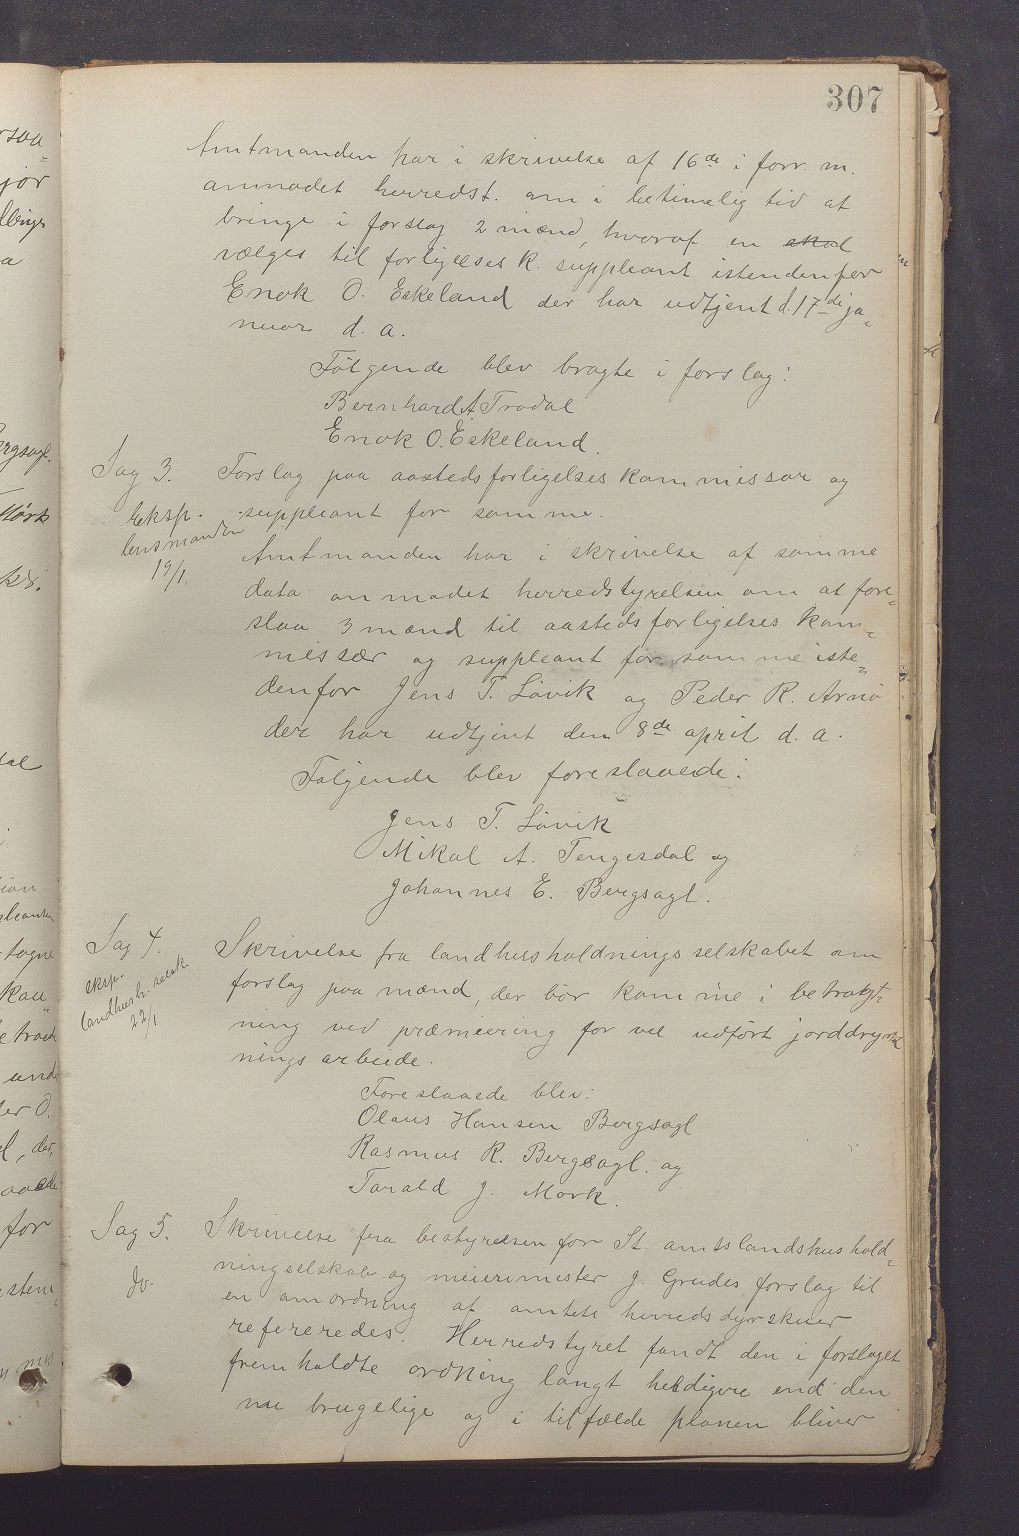 307
Amtmanden har i skrivelse af 16de i forr. m.
anmodet herredst. om i betimelig tid at
bringe i forslag 2 mænd, hvoraf en skal
vælges til forligelses k. suppleant istendenfor
Enok O. Eskeland der har udtjent d. 17de ja=
nuar d. a.
Følgende blev bragte i forslag:
Bernhard A Trodal
Enok O. Eskeland.
Sag 3. Forslag paa aastedsforligelses kommissær og
Eksp. suppleant for samme.
lensmanden
19/1.
Amtmanden har i skrivelse af samme
dato anmodet herredstyrelsen om at fore=
slaa 3 mænd til aastedsforligelses kom=
missær og suppleant for samme iste=
denfor Jens T. Løvik og Peder R. Arnø
der har udtjent den 8de april d. a.
Følgende blev foreslaaede:
Jens T. Løvik
Mikal A. Tengesdal og
Johannes E. Bergsagl.
Sag 4. Skrivelse fra landhusholdningsselskabet om
eksp. forslag paa mænd, der bør komme i betragt=
landhush. selsk.
22/1
ning ved præmiering for vel udført jorddyrk
nings arbeide.
Foreslaaede blev:
Olaus Hansen Bergsagl
Rasmus R. Bergsagl. og
Tarald J. Mørk.
Sag 5. Skrivelse fra bestyrelsen for St. amtslandshushold=
do. ningselskab og meierimester J. Grudes forslag til
en omordning af amtets herredsdyrskuer
refereredes. Herredstyret fandt den i forslaget
fremholdte ordning langt heldigere end den
nu brugelige og i tilfælde planen bliver